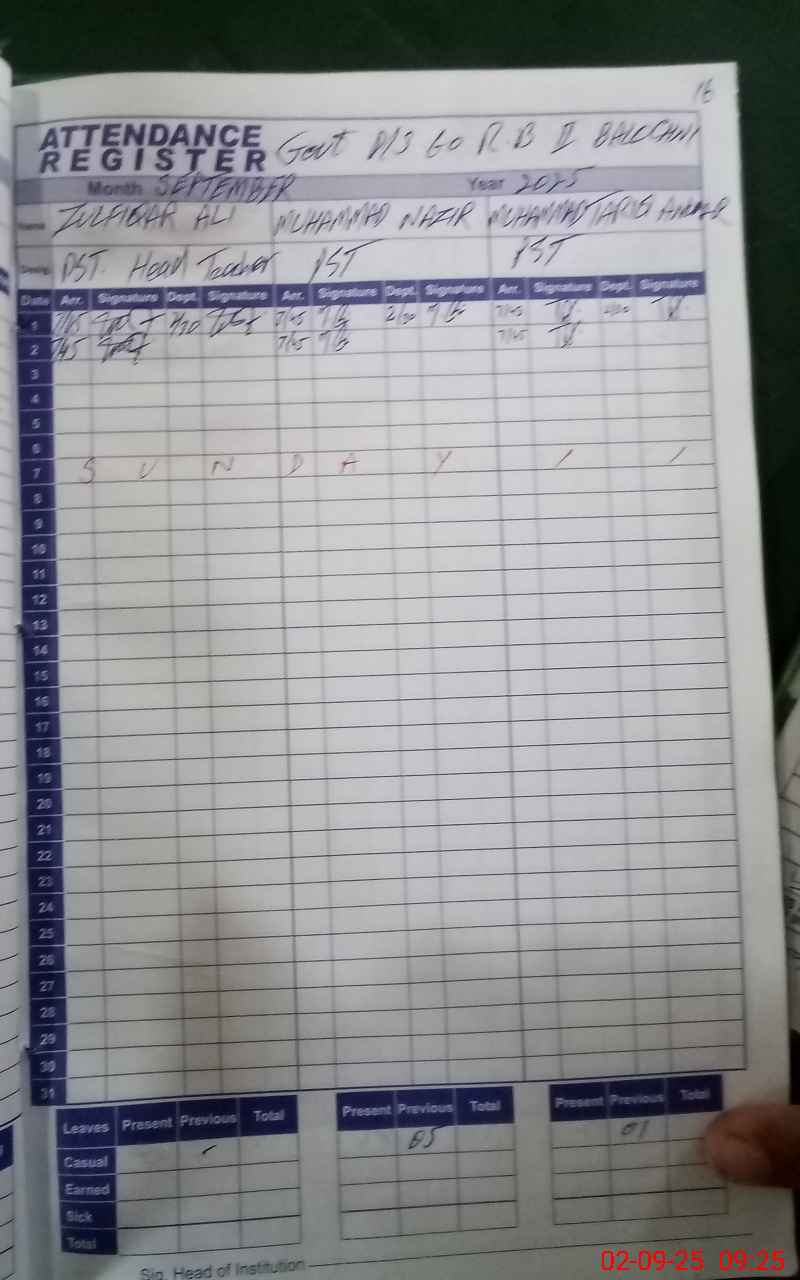 16
ATTENDANCE REGISTER Govt P/S 60 R.B II BALOCHNI
Month SEPTEMBER Year 2025
Name ZULFIQAR ALI MUHAMMAD NAZIR MUHAMMAD TARIQ
Desig. PST. Head Teacher PST PST
Date Arr. Signature Dept. Signature Arr. Signature Dept. Signature Arr. Signature Dept. Signature
1 7/45 2/30 7/45 2/30 7/45 2/30
2 7/45 7/45 7/45
3
4
5
6
7 S U N D A Y / /
8
9
10
11
12
13
14
15
16
17
18
19
20
21
22
23
24
25
26
27
28
29
30
31
Leaves Present Previous Total Present Previous Total Present Previous Total
Casual 05 01
Earned
Sick
Total
Sig. Head of Institution
02-09-25 09:25